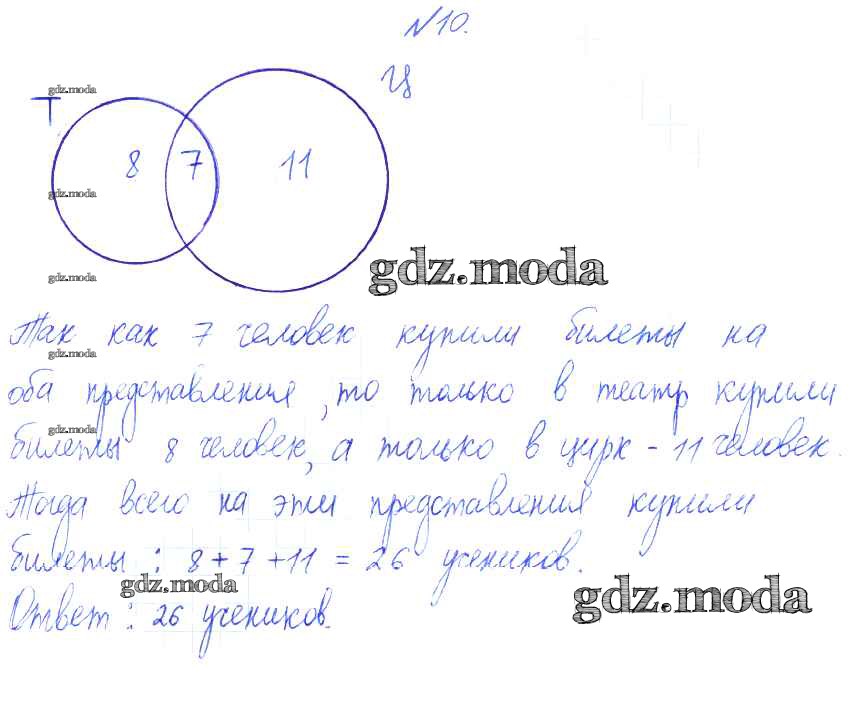 №10.
Ц
gdz.moda
Т
8 7 11
gdz.moda
gdz.moda
gdz.moda
Так как 7 человек купили билеты на
gdz.moda
оба представления, то только в театр купили
gdz.moda
билеты 8 человек, а только в цирк - 11 человек.
Тогда всего на эти представления купили
билеты: 8 + 7 + 11 = 26 учеников.
gdz.moda
gdz.moda
Ответ: 26 учеников.